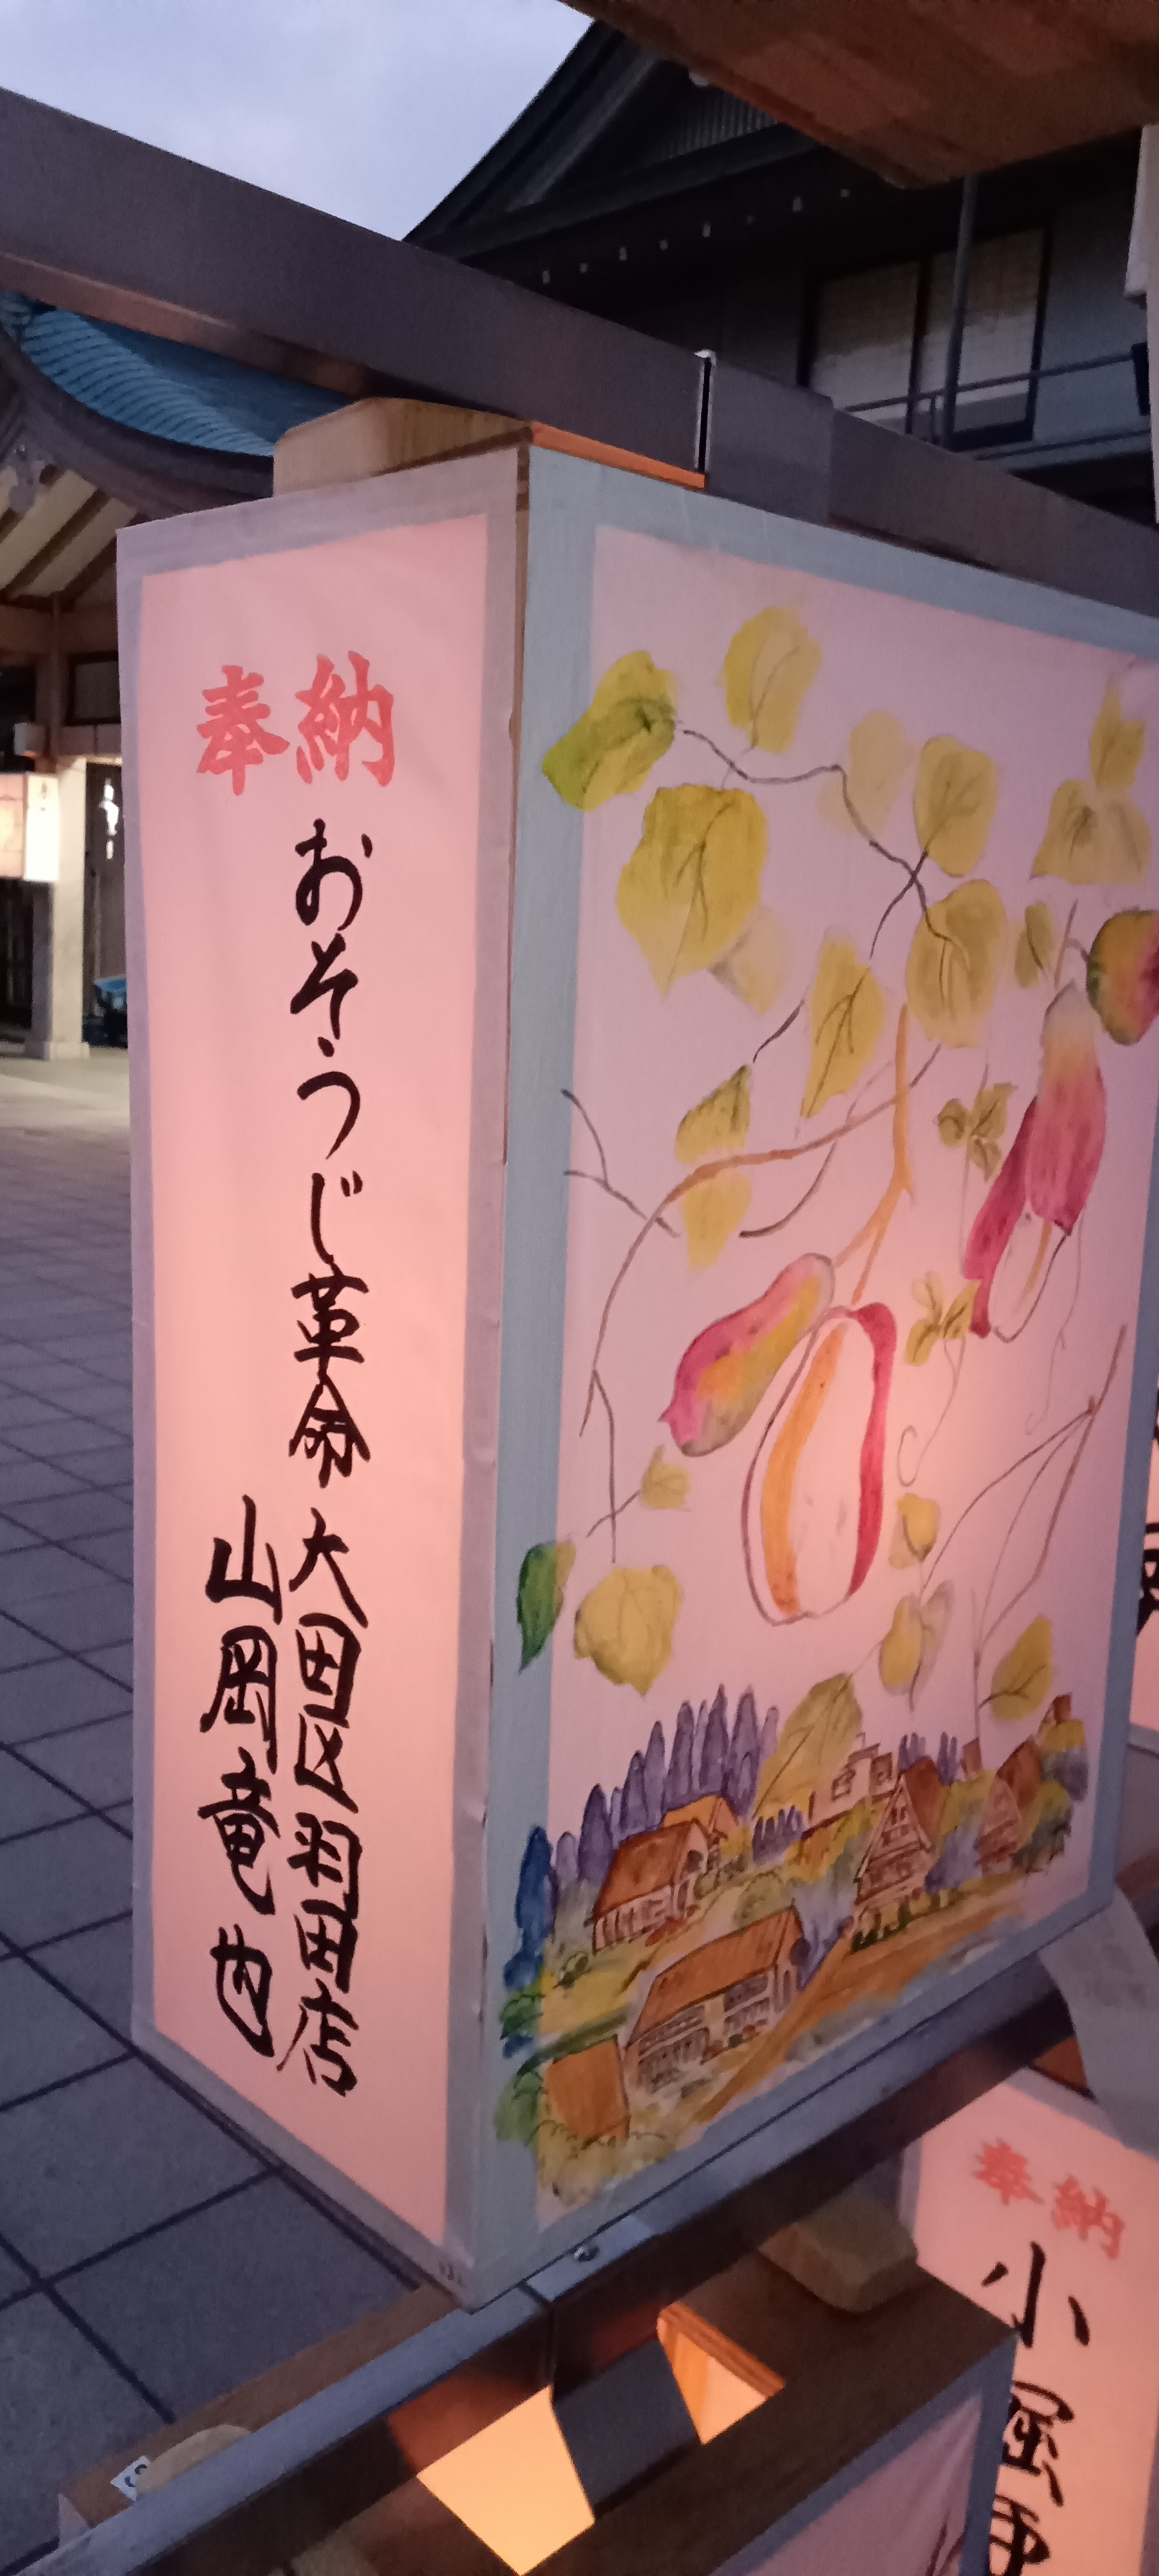 奉納
おそうじ革命 大田区羽田店
山岡竜也
奉納
小